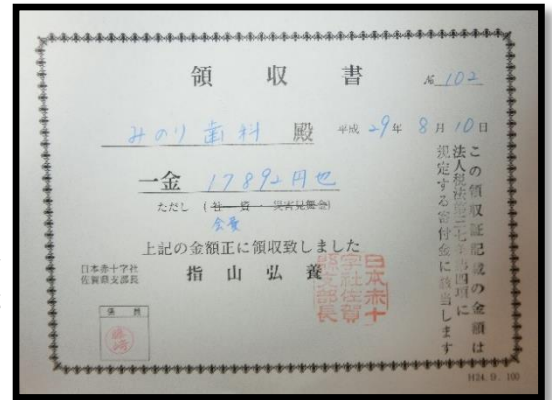 領収書
No 102
みのり歯科 殿
平成 29年 8月 10日
一金 17892円也
ただし (社資・災害見舞金)
会費
上記の金額正に領収致しました
日本赤十字社
佐賀県支部長
指山弘養
日本赤十
字社佐賀
縣支部長
係員
この領収証記載の金額は
法人税法第三七条第四項に
規定する寄付金に該当します
H24.9.100